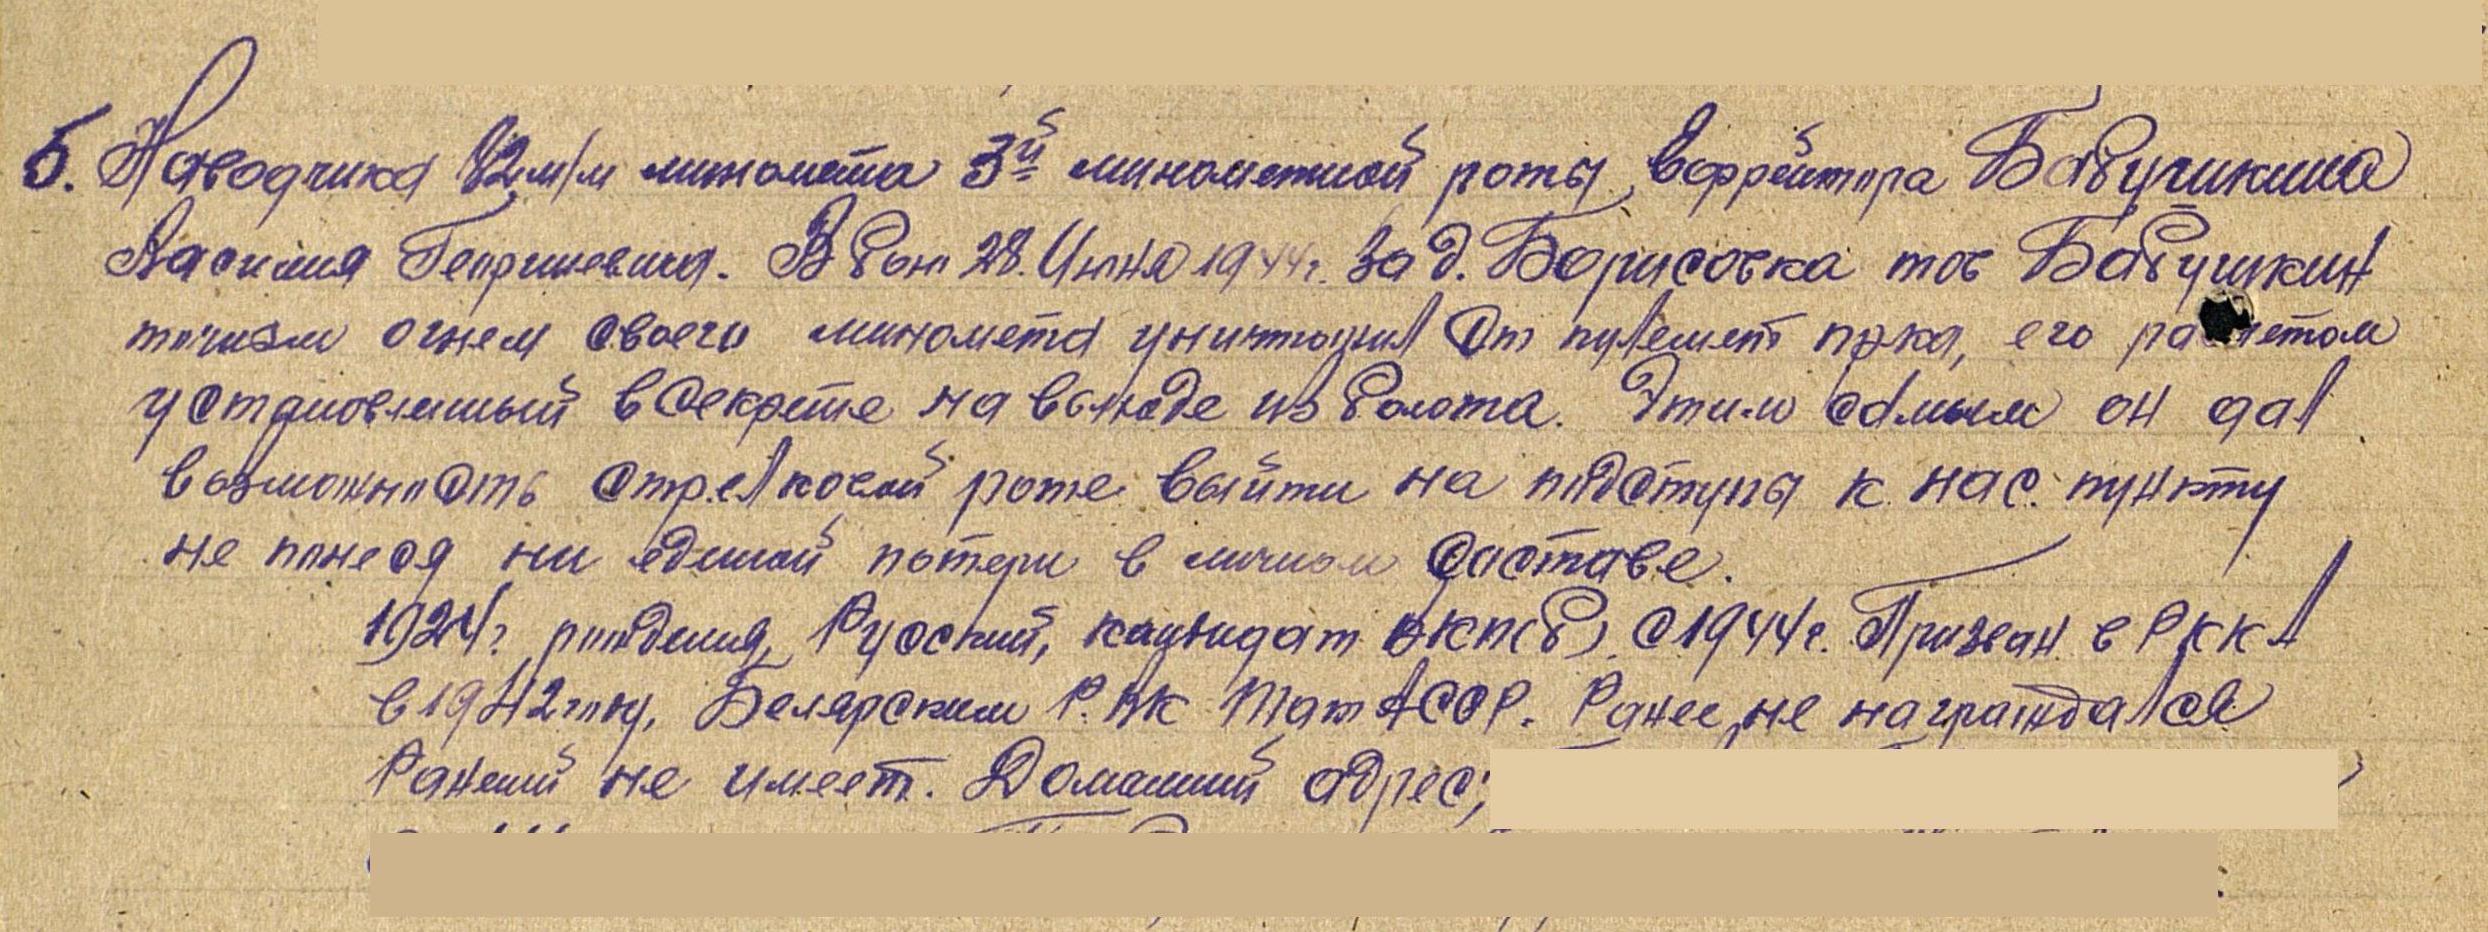 5. Наводчика 82 м/м миномета 3й минометной роты, ефрейтора Бабушкина
Василия Георгиевича. В бою 28. Июня 1944 г. За д. Борисовка тов Бабушкин
точным огнем своего миномета уничтожил ст пулемет пр-ка, его расчетом
установленный в секрете на выходе из болота. Этим самым он дал
возможность стрелковой роте выйти на подступы к нас. пункту
не понеся ни единой потери в личном составе.
1924 г. рождения, Русский, кандидат ВКП(б) с 1944 г. Призван в РККА
в 1942 году, Белярским Р.ВК ТатАССР. Ранее не награждался
Ранений не имеет. Домашний адрес;